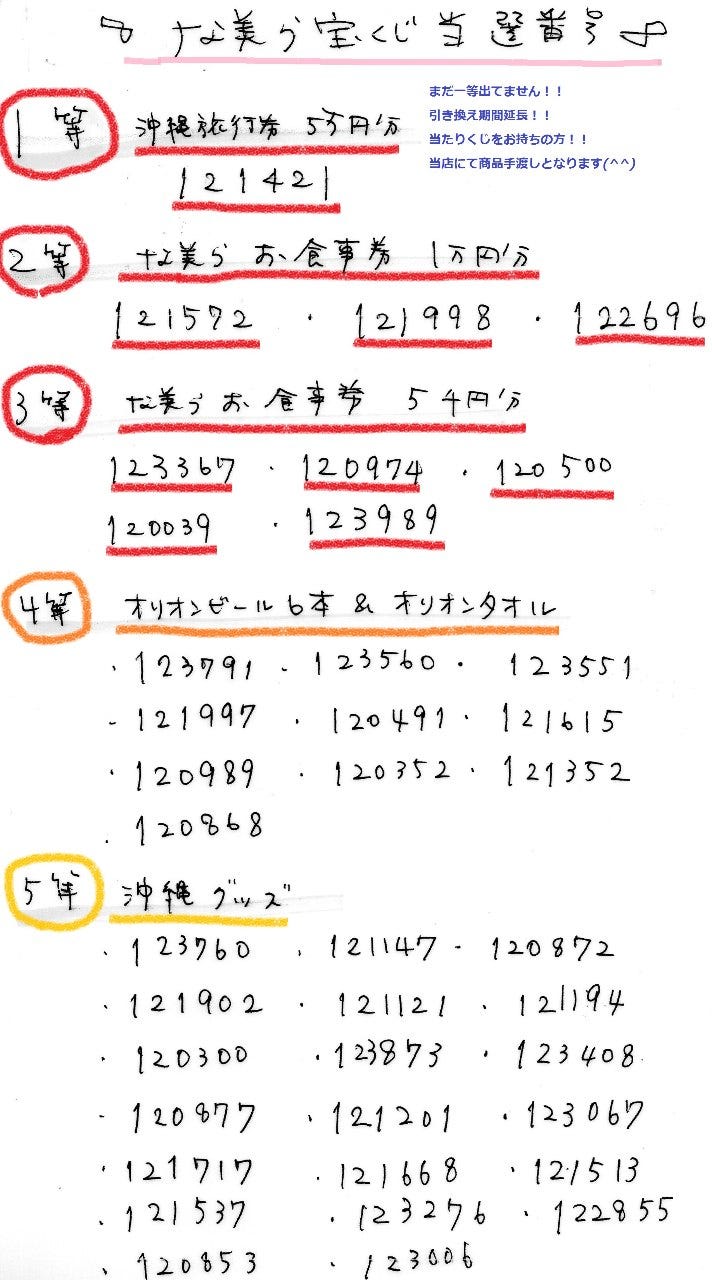 な美ら宝くじ当選番号
まだ一等出てません！！
引き換え期間延長！！
当たりくじをお持ちの方！！
当店にて商品手渡しとなります(^^)
1等 沖縄旅行券 5万円分
121421
2等 な美ら お食事券 1万円分
121572 ・ 121998 ・ 122696
3等 な美ら お食事券 5千円分
123367 ・ 120974 ・ 120500
120039 ・ 123989
4等 オリオンビール6本 & オリオンタオル
・123791 ・123560 ・ 123551
・121997 ・120491 ・ 121615
・120989 ・120352 ・ 121352
・120868
5等 沖縄グッズ
・123760 ・121147 ・120872
・121902 ・121121 ・121194
・120300 ・123873 ・123408
・120877 ・121201 ・123067
・121717 ・121668 ・121513
・121537 ・123276 ・122855
・120853 ・123006